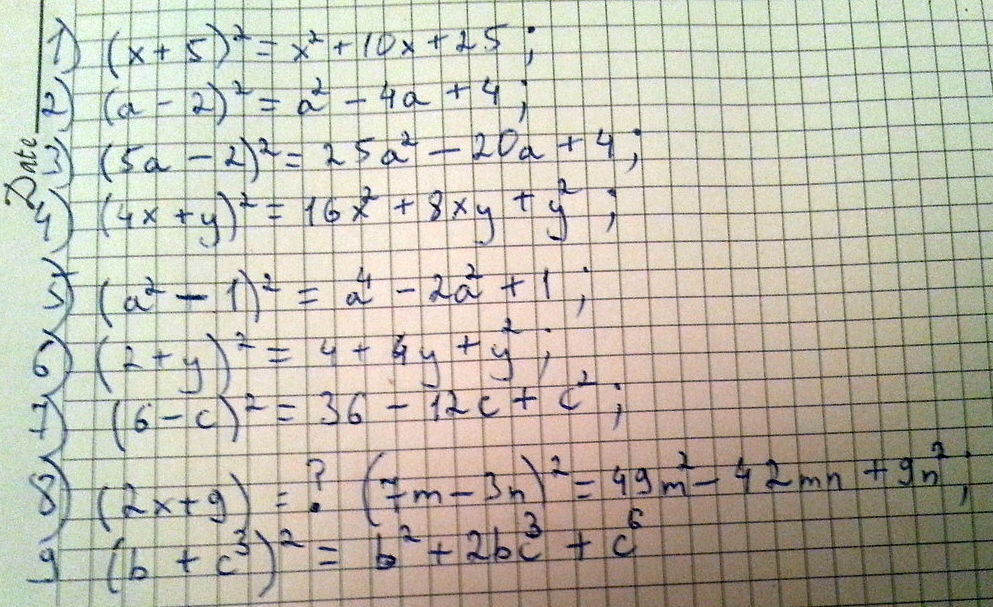 Date
1) (x+5)² = x² + 10x + 25;
2) (a - 2)² = a² - 4a + 4;
3) (5a - 2)² = 25a² - 20a + 4;
4) (4x + y)² = 16x² + 8xy + y²;
5) (a² - 1)² = a⁴ - 2a² + 1;
6) (2+y)² = 4 + 4y + y²;
7) (6 - c)² = 36 - 12c + c²;
8) (2x+9) = ? (7m - 3n)² = 49m² - 42mn + 9n²;
9) (b + c³)² = b² + 2bc³ + c⁶